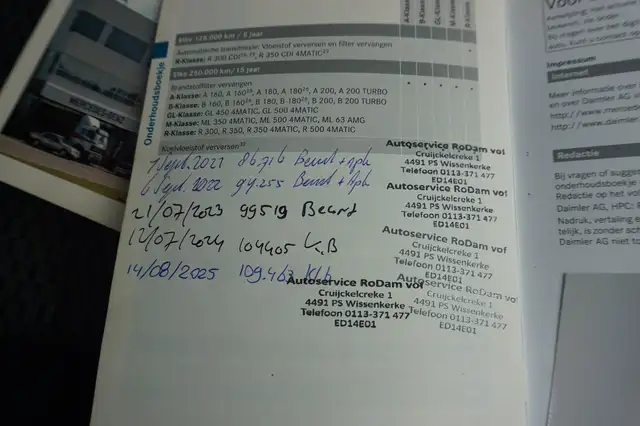 Onderhoudsboekje
A-Klasse
B-Klasse
GL-Klasse
M-Klasse
R-Klasse
Elke 125.000 km / 5 jaar
Automatische transmissie: Vloeistof verversen en filter vervangen
R-Klasse: R 300 CDI, R 350 CDI 4MATIC
Elke 250.000 km/15 jaar
Brandstoffilter vervangen
A-Klasse: A 160, A 160, A 180, A 180, A 200, A 200 TURBO
B-Klasse: B 160, B 160, B 180, B 180, B 200, B 200 TURBO
GL-Klasse: GL 450 4MATIC, GL 500 4MATIC
M-Klasse: ML 350 4MATIC, ML 500 4MATIC, ML 63 AMG
R-Klasse: R 300, R 350, R 350 4MATIC, R 500 4MATIC
Koelvloeistof verversen
7 Sept. 2021 86.716 Beurt + Apk
6 Sept. 2022 94.255 Beurt + Apk
21/07/2023 99519 Beurt
12/07/2024 104405 K.B
14/08/2025 109.463
Autoservice RoDam vof
Cruijckelcreke 1
4491 PS Wissenkerke
Telefoon 0113-371 477
ED14E01
Autoservice RoDam vof
Cruijckelcreke 1
4491 PS Wissenkerke
Telefoon 0113-371 477
ED14E01
Autoservice RoDam vof
Cruijckelcreke 1
4491 PS Wissenkerke
Telefoon 0113-371 477
ED14E01
Autoservice RoDam vof
Cruijckelcreke 1
4491 PS Wissenkerke
Telefoon 0113-371 477
ED14E01
Autoservice RoDam vof
Cruijckelcreke 1
4491 PS Wissenkerke
Telefoon 0113-371 477
ED14E01
Impressum
Internet
Meer informatie over
en over Daimler AG
http://www.
http://www.
Redactie
Bij vragen of sugges
onderhoudsboekje
Redactie op het vol
Daimler AG, HPC:
Nadruk, vertaling e
telijk, is zonder sch
Daimler AG niet to